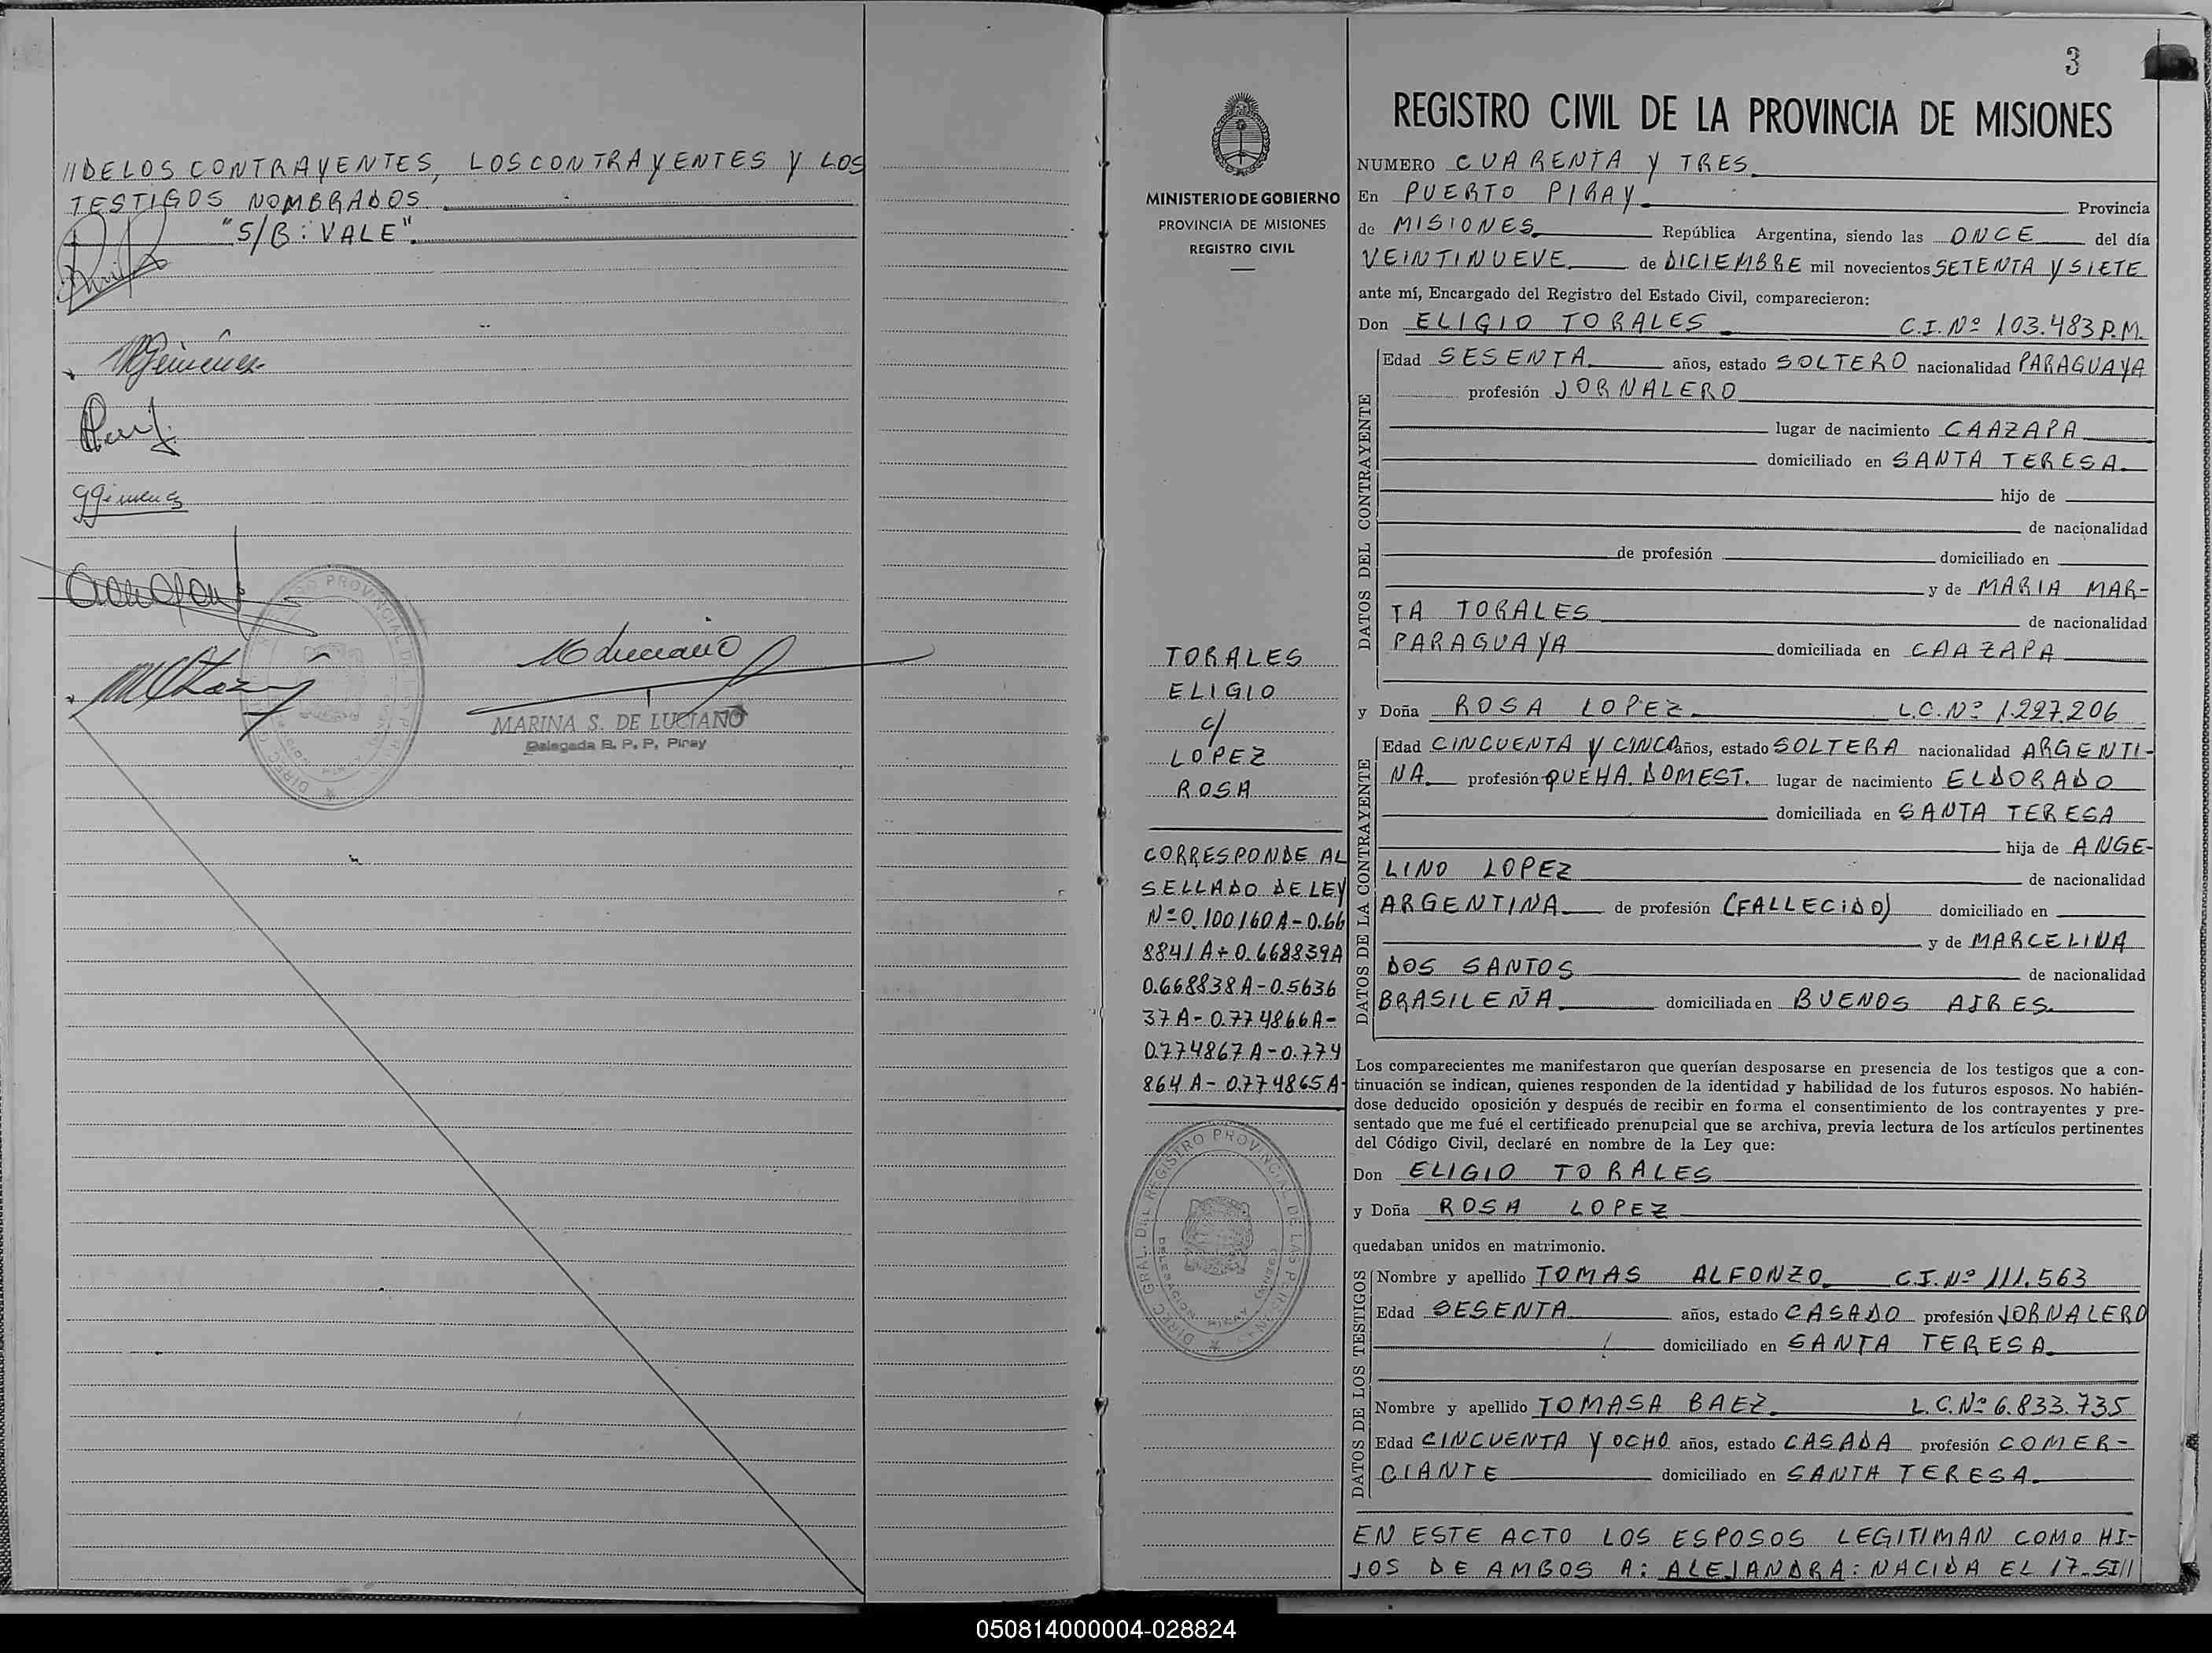 //DE LOS CONTRAYENTES, LOS CONTRAYENTES Y LOS
TESTIGOS NOMBRADOS
"S/B: VALE"
MARINA S. DE LUCIANO
Delegada R. P. P. Piray
3
REGISTRO CIVIL DE LA PROVINCIA DE MISIONES
MINISTERIO DE GOBIERNO
PROVINCIA DE MISIONES
REGISTRO CIVIL
TORALES
ELIGIO
c/
LOPEZ
ROSA
CORRESPONDE AL
SELLADO DE LEY
Nº 0.100160A-0.66
8841A+0.668839A
0.668838A-0.5636
37A-0.774866A-
0.774867A-0.774
864A-0.774865A-
NUMERO CUARENTA Y TRES
En PUERTO PIRAY Provincia
de MISIONES República Argentina, siendo las ONCE del día
VEINTINUEVE de DICIEMBRE mil novecientos SETENTA Y SIETE
ante mí, Encargado del Registro del Estado Civil, comparecieron:
Don ELIGIO TORALES C.I. Nº 103.483 P.M.
DATOS DEL CONTRAYENTE
Edad SESENTA años, estado SOLTERO nacionalidad PARAGUAYA
profesión JORNALERO
lugar de nacimiento CAAZAPA
domiciliado en SANTA TERESA
hijo de
de nacionalidad
de profesión domiciliado en
y de MARIA MAR-
TA TORALES de nacionalidad
PARAGUAYA domiciliada en CAAZAPA
y Doña ROSA LOPEZ L.C. Nº 1.227.206
DATOS DE LA CONTRAYENTE
Edad CINCUENTA Y CINCO años, estado SOLTERA nacionalidad ARGENTI-
NA profesión QUEHA. DOMEST. lugar de nacimiento ELDORADO
domiciliada en SANTA TERESA
hija de ANGE-
LINO LOPEZ de nacionalidad
ARGENTINA de profesión (FALLECIDO) domiciliado en
y de MARCELINA
DOS SANTOS de nacionalidad
BRASILEÑA domiciliada en BUENOS AIRES
Los comparecientes me manifestaron que querían desposarse en presencia de los testigos que a con-
tinuación se indican, quienes responden de la identidad y habilidad de los futuros esposos. No habién-
dose deducido oposición y después de recibir en forma el consentimiento de los contrayentes y pre-
sentado que me fué el certificado prenupcial que se archiva, previa lectura de los artículos pertinentes
del Código Civil, declaré en nombre de la Ley que:
Don ELIGIO TORALES
y Doña ROSA LOPEZ
quedaban unidos en matrimonio.
DATOS DE LOS TESTIGOS
Nombre y apellido TOMAS ALFONZO C.I. Nº 111.563
Edad SESENTA años, estado CASADO profesión JORNALERO
domiciliado en SANTA TERESA
Nombre y apellido TOMASA BAEZ L.C. Nº 6.833.735
Edad CINCUENTA Y OCHO años, estado CASADA profesión COMER-
CIANTE domiciliado en SANTA TERESA
EN ESTE ACTO LOS ESPOSOS LEGITIMAN COMO HI-
JOS DE AMBOS A: ALEJANDRA: NACIDA EL 17-SI//
050814000004-028824